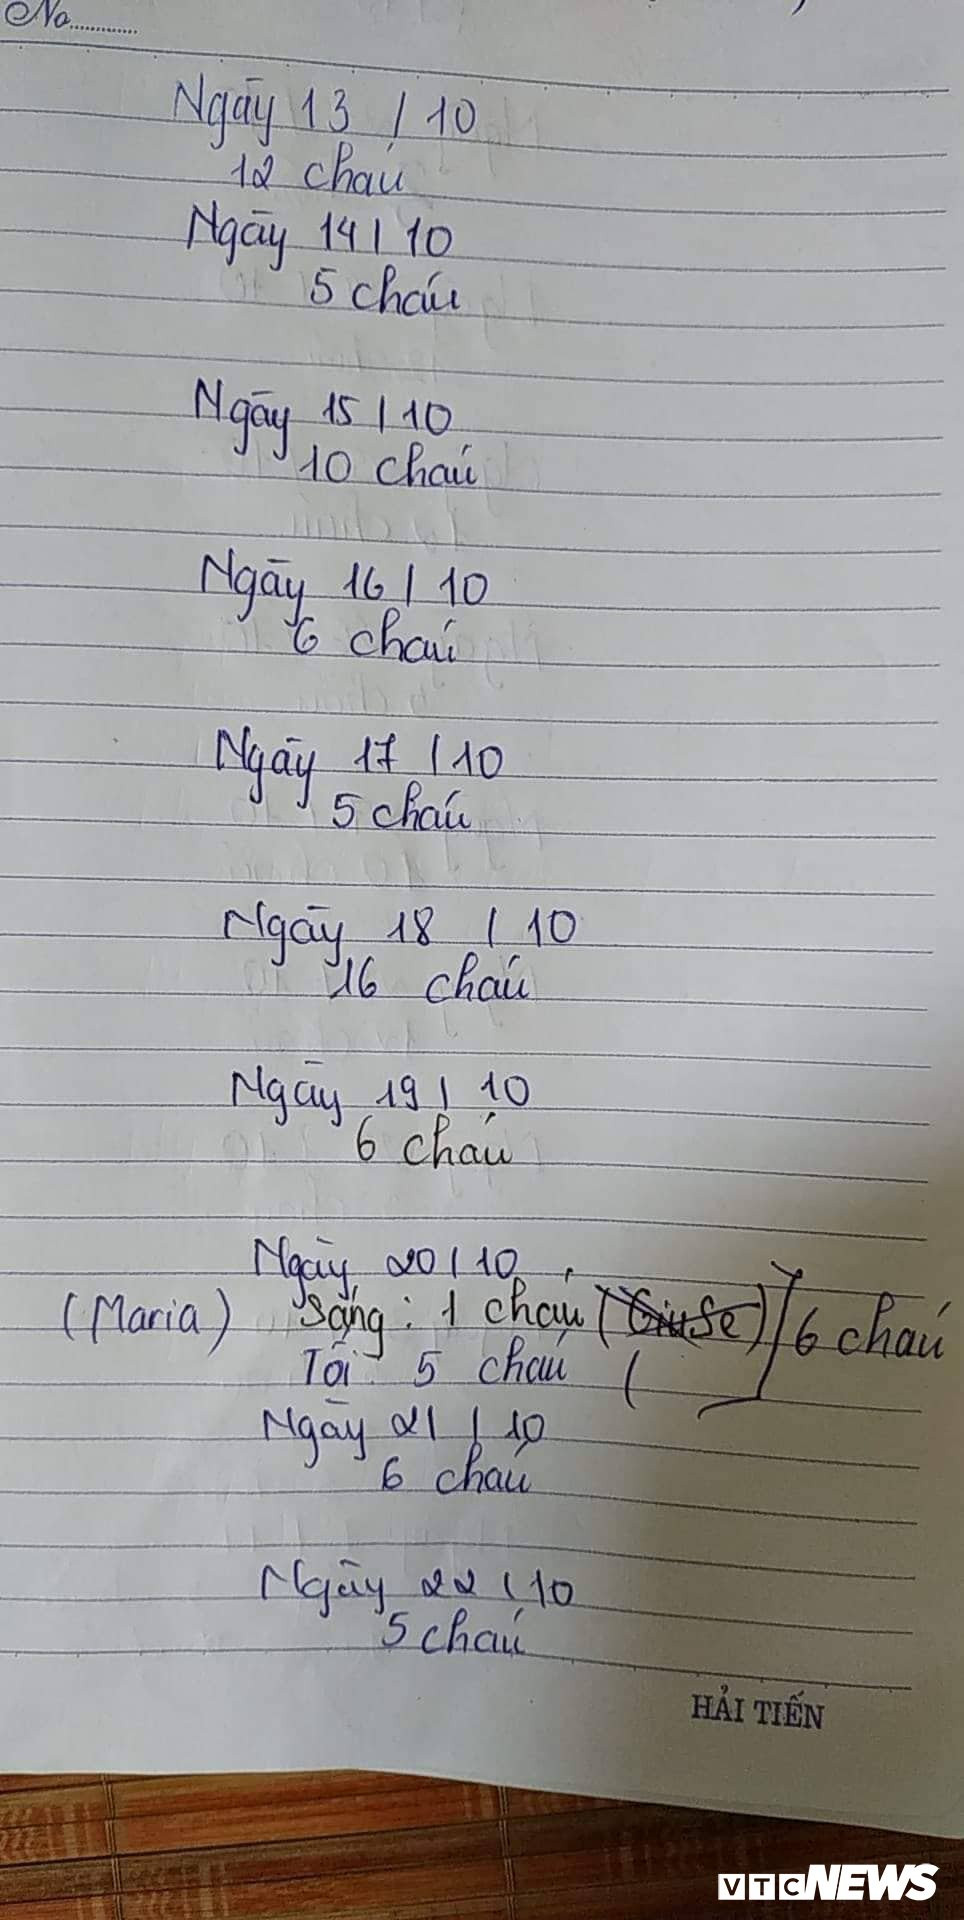 No.............
Ngày 13 / 10
12 cháu
Ngày 14 / 10
5 cháu
Ngày 15 / 10
10 cháu
Ngày 16 / 10
6 cháu
Ngày 17 / 10
5 cháu
Ngày 18 / 10
16 cháu
Ngày 19 / 10
6 cháu
Ngày 20 / 10
(Maria) Sáng: 1 cháu (GiuSe) 6 cháu
Tối 5 cháu (
Ngày 21 / 10
6 cháu
Ngày 22 / 10
5 cháu
HẢI TIẾN
VTC NEWS